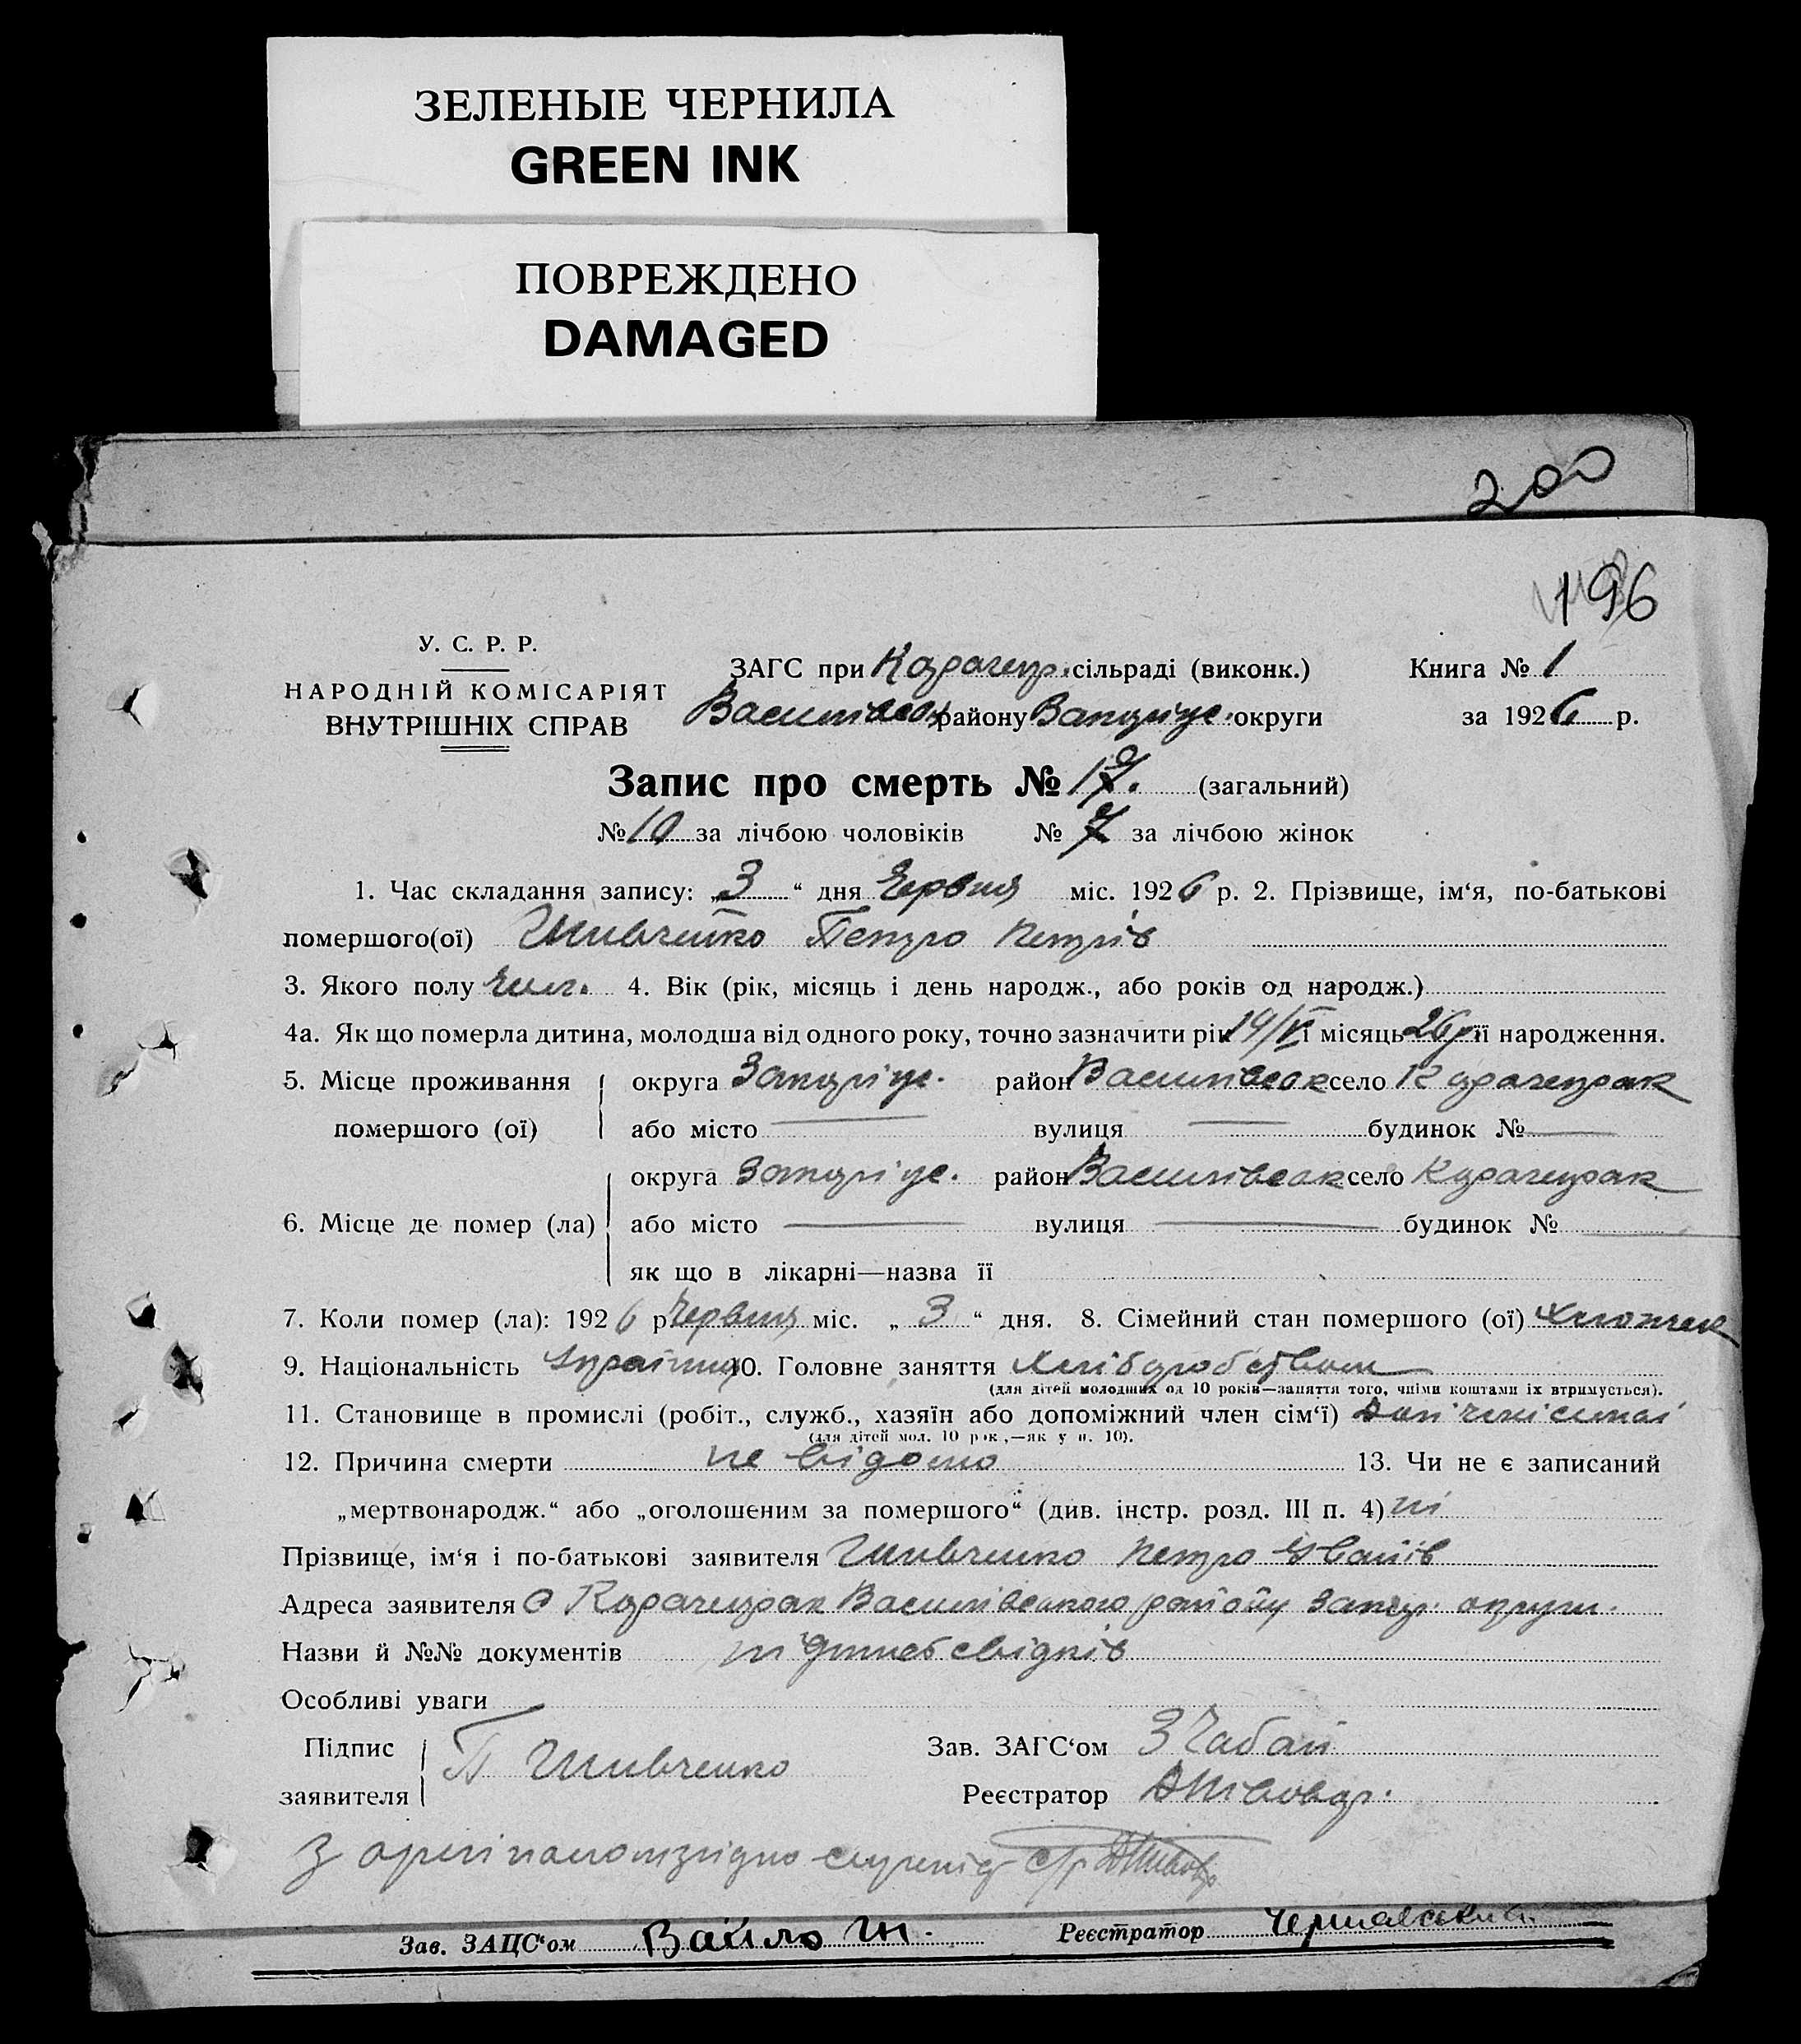 ЗЕЛЕНЫЕ ЧЕРНИЛА
GREEN INK
ПОВРЕЖДЕНО
DAMAGED
200
196
У. С. Р. Р.
НАРОДНІЙ КОМІСАРІЯТ
ВНУТРІШНІХ СПРАВ
ЗАГС при Карачекр. сільраді (виконк.) Книга № 1
району округи за 1926 р.
Запис про смерть № 17. (загальний)
№ 10 за лічбою чоловіків № 7 за лічбою жінок
1. Час складання запису: „3“ дня Червня міс. 1926 р. 2. Прізвище, ім‘я, по-батькові
помершого(ої) Петро Петрів
3. Якого полу чол. 4. Вік (рік, місяць і день народж., або років од народж.)
4а. Як що померла дитина, молодша від одного року, точно зазначити рік і місяць її народження.
5. Місце проживання округа район Василівськ село Карачекрак
помершого (ої) або місто — вулиця — будинок № —
округа район Василівськ село Карачекрак
6. Місце де помер (ла) або місто — вулиця — будинок № —
як що в лікарні—назва її
7. Коли помер (ла): 1926 р Червня міс. „3“ дня. 8. Сімейний стан помершого (ої)
9. Національність Україн 10. Головне заняття Хліборобством
(для дітей молодших од 10 років—заняття того, чиїми коштами їх втримується).
11. Становище в промислі (робіт., служб., хазяїн або допоміжний член сім‘ї)
(для дітей мол. 10 рок.,—як у п. 10).
12. Причина смерти не відомо 13. Чи не є записаний
„мертвонародж.“ або „оголошеним за помершого“ (див. інстр. розд. III п. 4) ні
Прізвище, ім‘я і по-батькові заявителя Петро Іванів
Адреса заявителя с Карачекрак Василівського району округи.
Назви й №№ документів свідків
Особливі уваги
Підпис П Зав. ЗАГС‘ом З Чабан
заявителя Реєстратор
З оригіналом згідно
Зав. ЗАЦС‘ом Вайло Реєстратор Чернявский